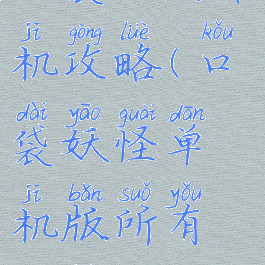 jī gōng lüè kǒu
机攻略(口
dài yāo guài dān
袋妖怪单
jī bǎn suǒ yǒu
机版所有